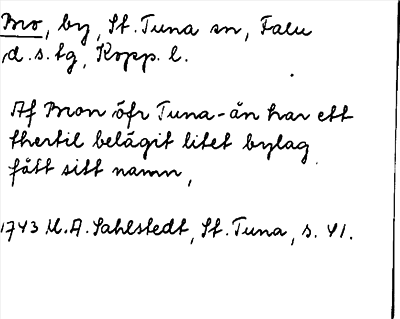 Bro, by, St. Tuna sn, Falu
d.s.tg, Kopp. l.
Af Bron öfr Tuna-ån har ett
thertil belägit litet bylag
fått sitt namn,
1743 U.A. Sahlstedt, St. Tuna, s. 41.